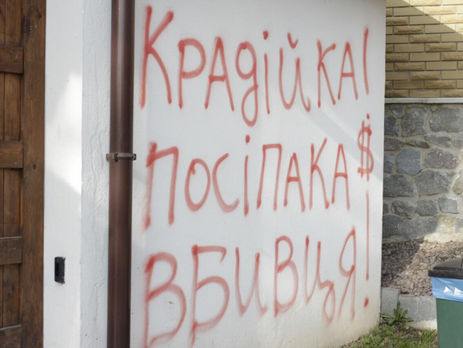 Крадійка!
посіпака$!
вбивця!